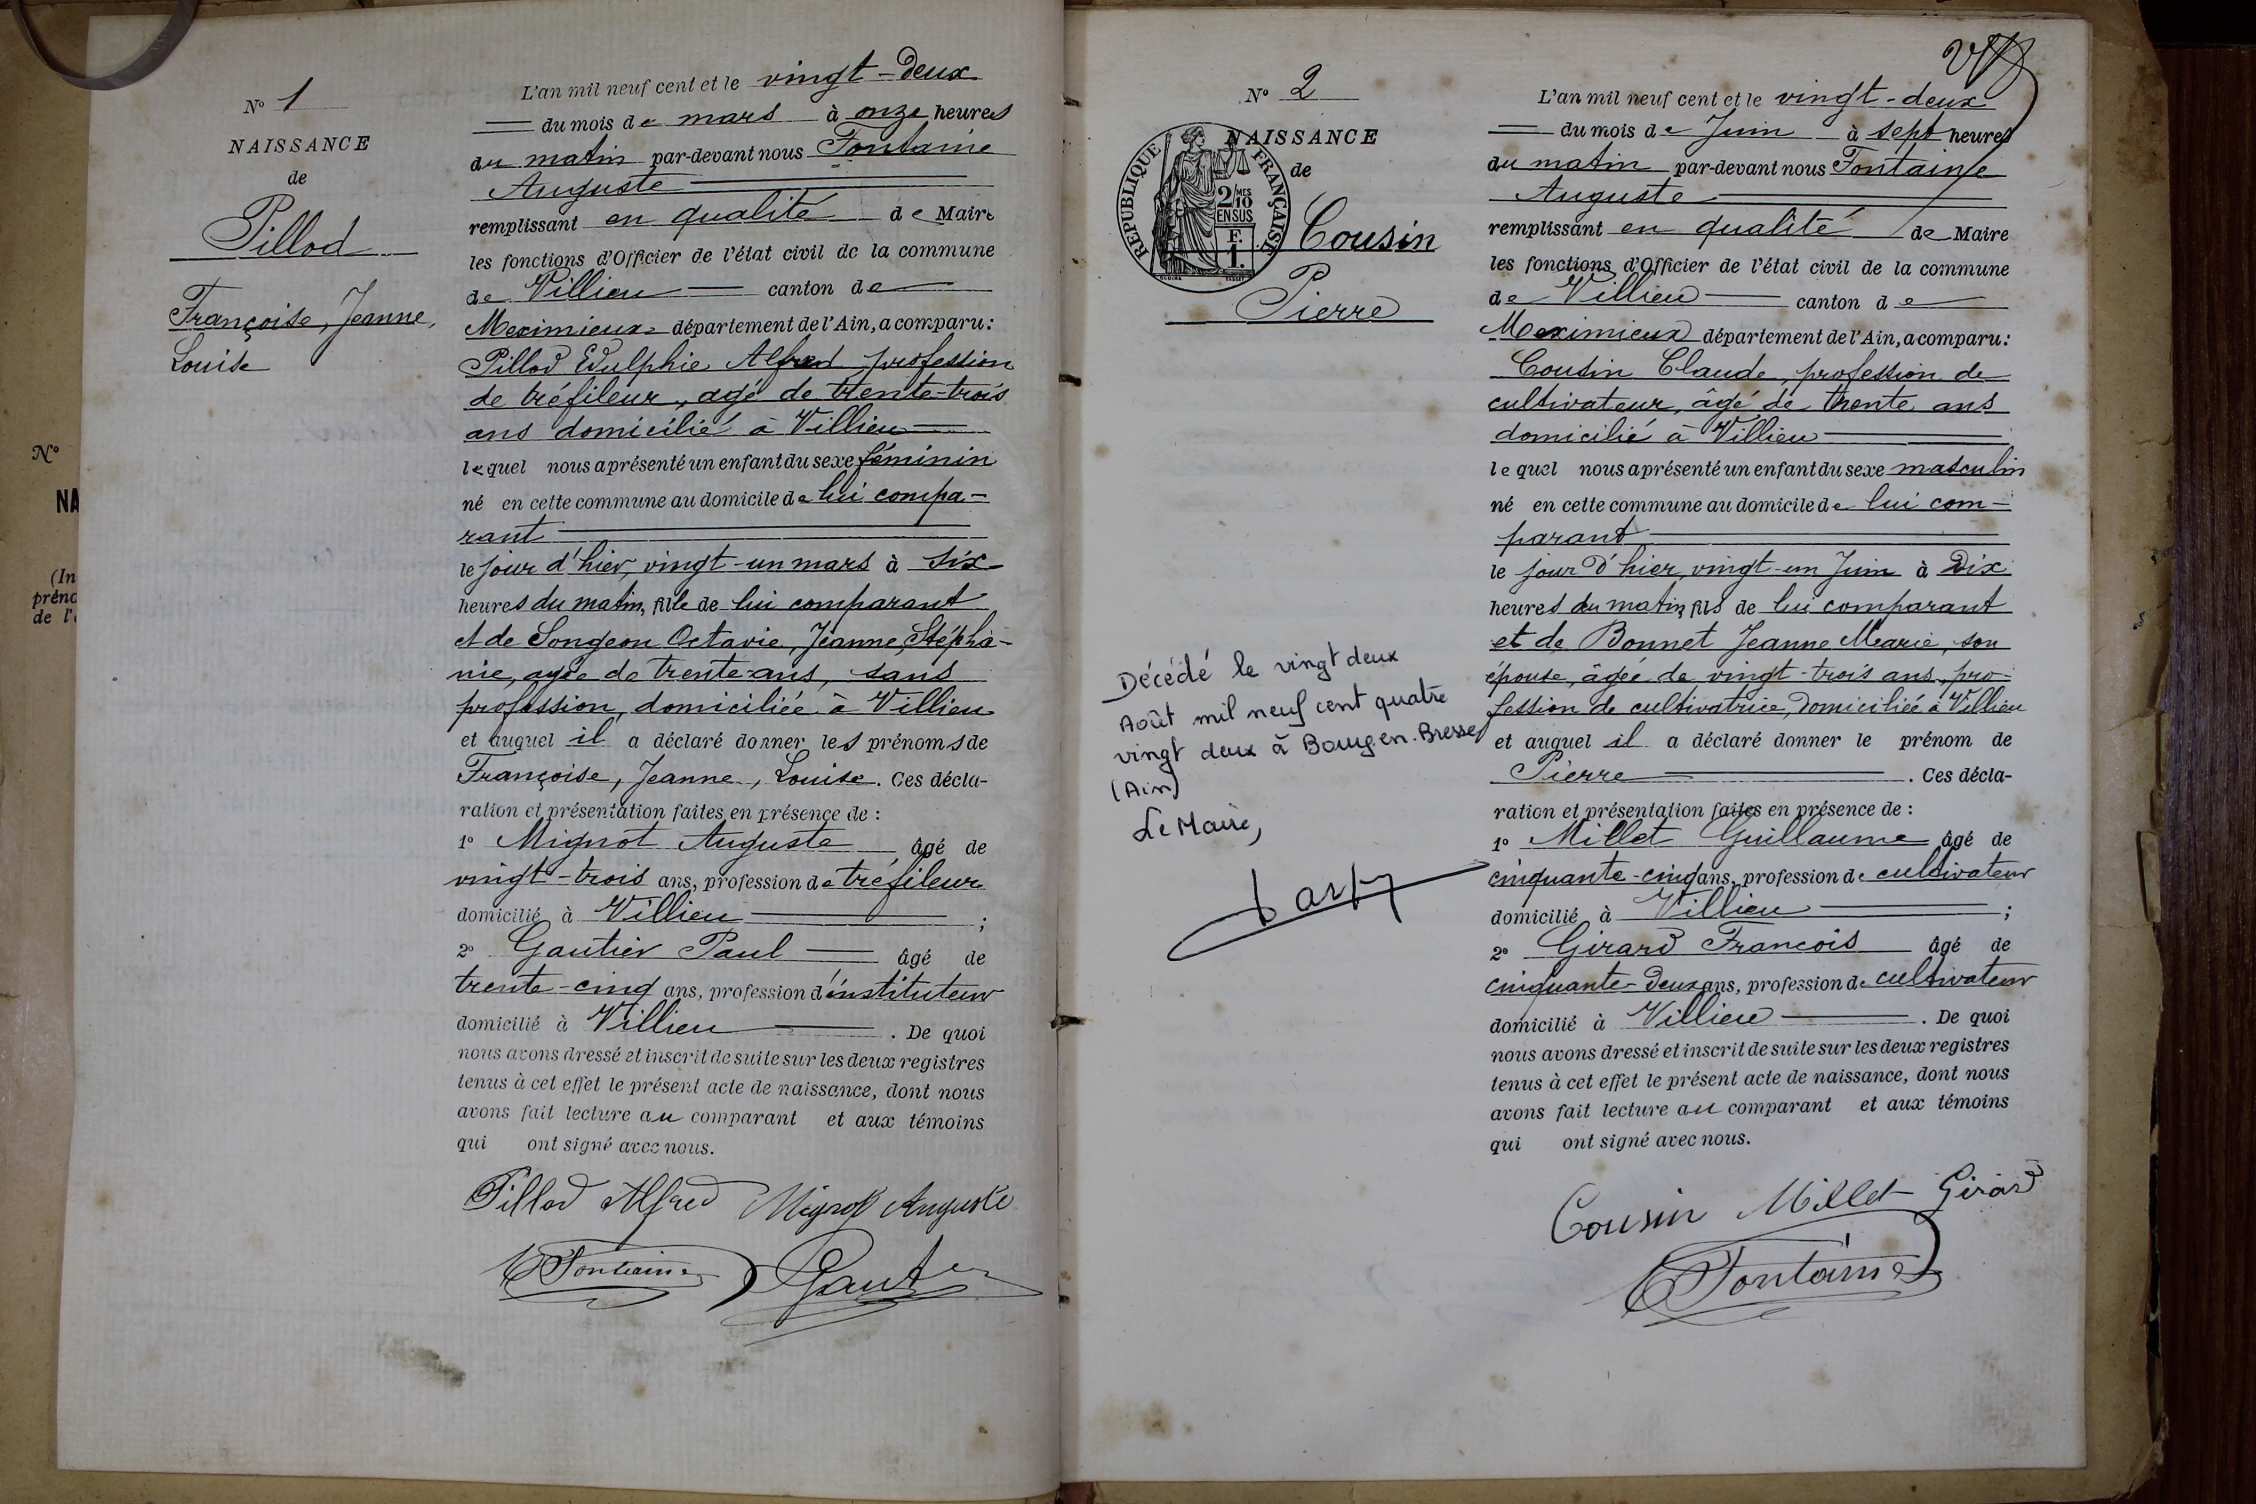 N° 1
NAISSANCE
de
Pillod
Françoise, Jeanne,
Louise
L'an mil neuf cent et le vingt-deux
du mois de mars à onze heures
du matin par-devant nous Fontaine
Auguste
remplissant en qualité de Maire
les fonctions d'Officier de l'état civil de la commune
de Villieu canton de
Meximieux département de l'Ain, a comparu:
Pillod Edulphie Alfred profession
de tréfileur, agé de trente-trois
ans domicilié à Villieu
lequel nous a présenté un enfant du sexe féminin
né en cette commune au domicile de lui compa-
rant
le jour d'hier, vingt-un mars à six
heures du matin, fille de lui comparant
et de Songeon Octavie, Jeanne, Stépha-
nie, agée de trente-ans, sans
profession, domiciliée à Villieu
et auquel il a déclaré donner les prénoms de
Françoise, Jeanne, Louise. Ces décla-
ration et présentation faites en présence de :
1° Mignot Auguste âgé de
vingt-trois ans, profession de tréfileur
domicilié à Villieu ;
2° Gautier Paul âgé de
trente-cinq ans, profession d'instituteur
domicilié à Villieu . De quoi
nous avons dressé et inscrit de suite sur les deux registres
tenus à cet effet le présent acte de naissance, dont nous
avons fait lecture au comparant et aux témoins
qui ont signé avec nous.
Pillod Alfred Mignot Auguste
Fontaine Gautier
N°
NA
(In
préno
de l'
N° 2
NAISSANCE
de
RÉPUBLIQUE FRANÇAISE
2/10 MES
EN SUS
F.
1.
Cousin
Pierre
Décédé le vingt deux
Août mil neuf cent quatre
vingt deux à Bourg.en.Bresse
(Ain)
Le Maire,
L'an mil neuf cent et le vingt-deux
du mois de Juin à sept heures
du matin par-devant nous Fontaine
Auguste
remplissant en qualité de Maire
les fonctions d'Officier de l'état civil de la commune
de Villieu canton de
Meximieux département de l'Ain, a comparu:
Cousin Claude, profession de
cultivateur, âgé de trente ans
domicilié à Villieu
lequel nous a présenté un enfant du sexe masculin
né en cette commune au domicile de lui com-
parant
le jour d'hier, vingt-un Juin à Dix
heures du matin, fils de lui comparant
et de Bonnet Jeanne Marie, son
épouse, âgée de vingt-trois ans, pro-
fession de cultivatrice, domiciliée à Villieu
et auquel il a déclaré donner le prénom de
Pierre . Ces décla-
ration et présentation faites en présence de :
1° Millet Guillaume âgé de
cinquante-cinq ans, profession de cultivateur
domicilié à Villieu ;
2° Girard Francois âgé de
cinquante-deux ans, profession de cultivateur
domicilié à Villieu . De quoi
nous avons dressé et inscrit de suite sur les deux registres
tenus à cet effet le présent acte de naissance, dont nous
avons fait lecture au comparant et aux témoins
qui ont signé avec nous.
Cousin Millet Girard
Fontaine